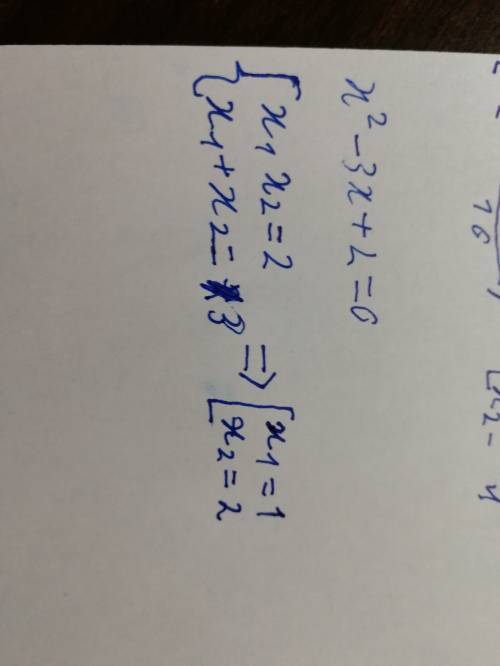 x² - 3x + 2 = 0
{ x₁ x₂ = 2
{ x₁ + x₂ = 3 => [ x₁ = 1
[ x₂ = 2
16
[x₂ = 4